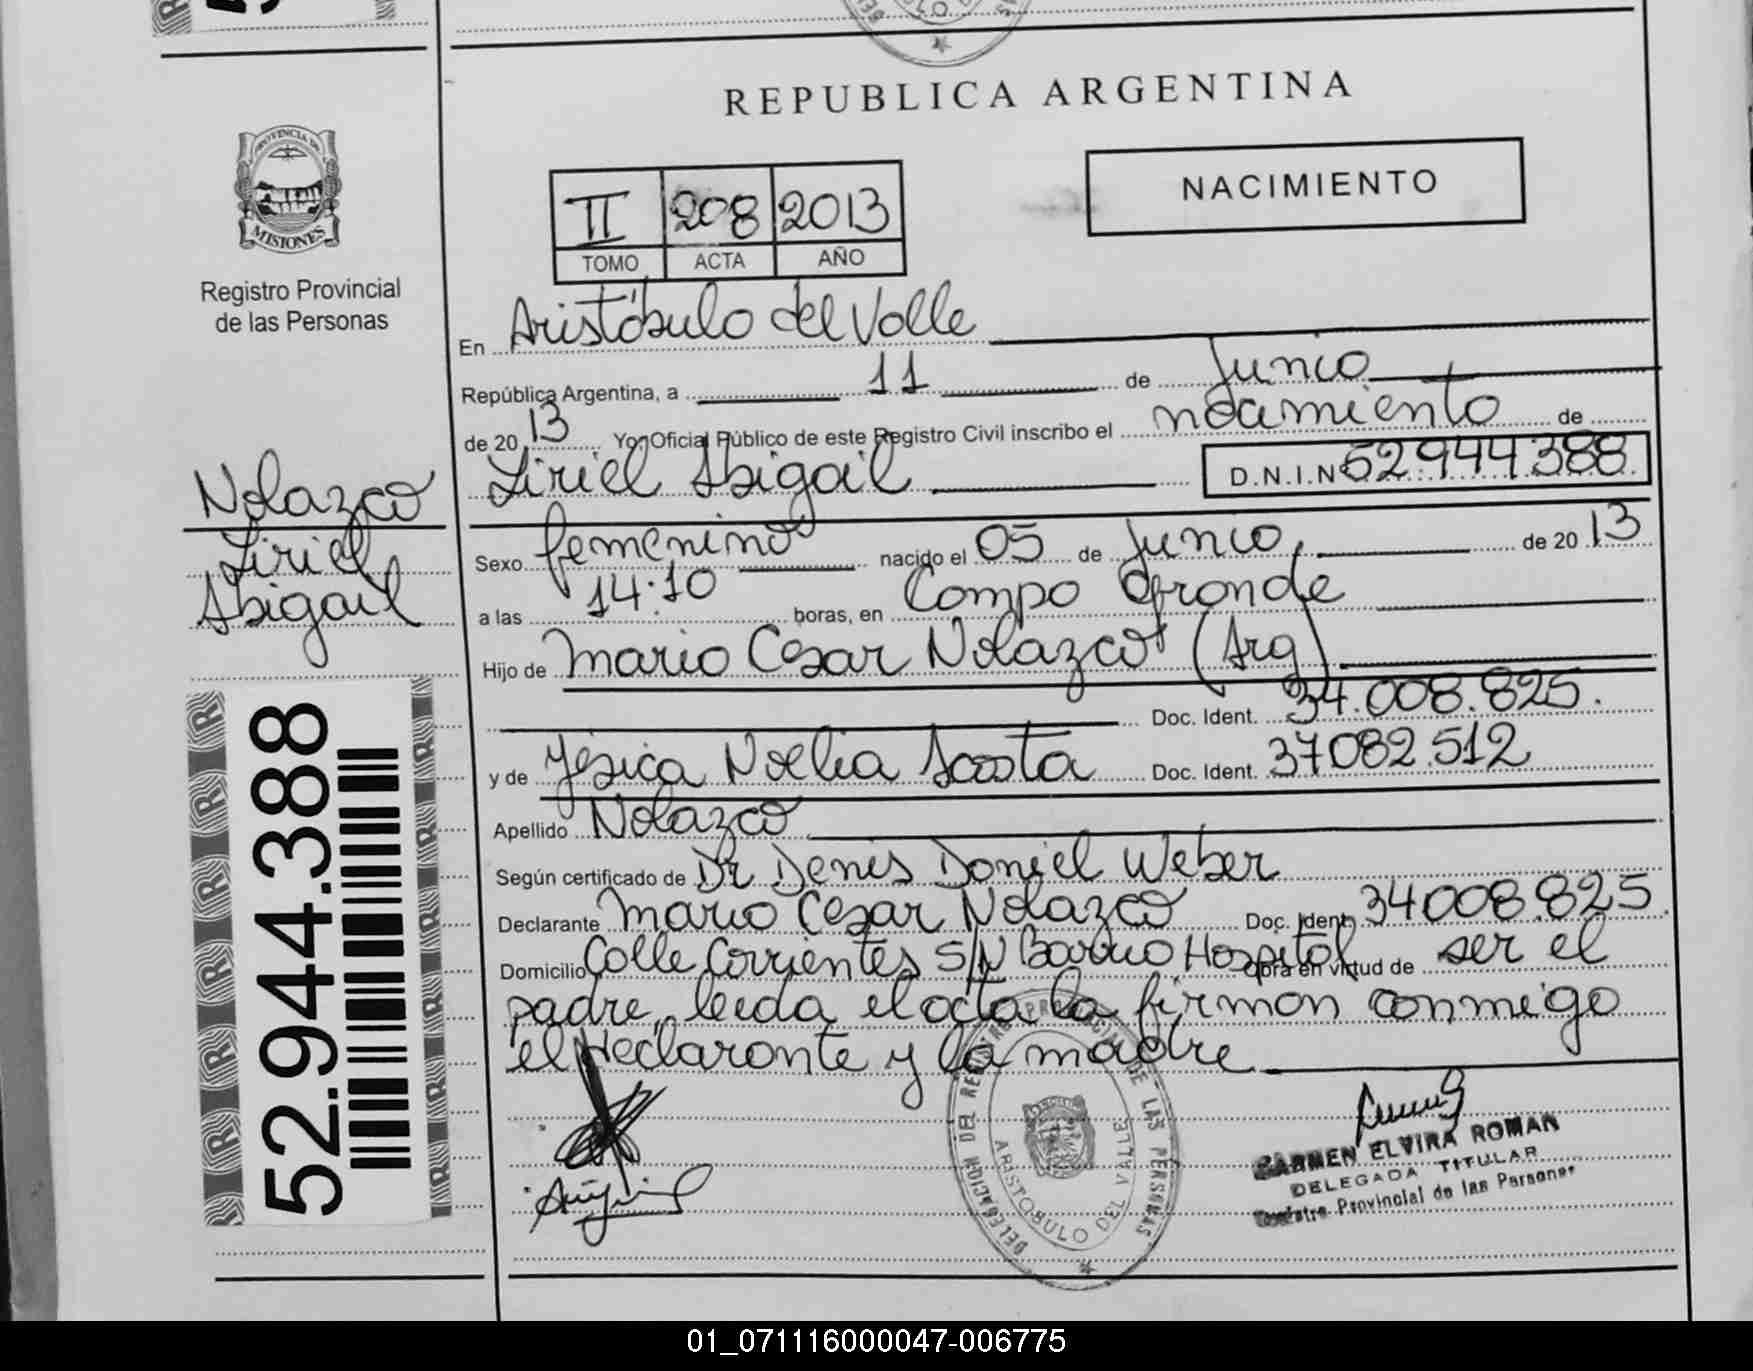 REPUBLICA ARGENTINA
PROVINCIA DE
MISIONES
Registro Provincial
de las Personas
NACIMIENTO
II 208 2013
TOMO ACTA AÑO
En Aristóbulo del Valle
República Argentina, a 11 de Junio
de 20 13 Yo, Oficial Público de este Registro Civil inscribo el nacimiento de
Liriel Abigail D.N.I.N 52.944.388
Nolazco
Liriel
Abigail
Sexo femenino nacido el 05 de Junio, de 20 13
a las 14:10 horas, en Campo Grande
Hijo de Mario Cesar Nolazco (Arg)
Doc. Ident. 34.008.825.
y de Yésica Noelia Acosta Doc. Ident. 37082.512
Apellido Nolazco
Según certificado de Dr Denis Daniel Weber
Declarante Mario Cesar Nolazco Doc. Ident 34008.825
Domicilio Calle Corrientes S/N Barrio Hospital obra en virtud de ser el
padre, leida el acta la firman conmigo
el declarante y la madre
52.944.388
DELEGACION DEL REGISTRO PROVINCIAL DE LAS PERSONAS
ARISTOBULO DEL VALLE
CARMEN ELVIRA ROMAN
DELEGADA TITULAR
Registro Provincial de las Personas
01_071116000047-006775